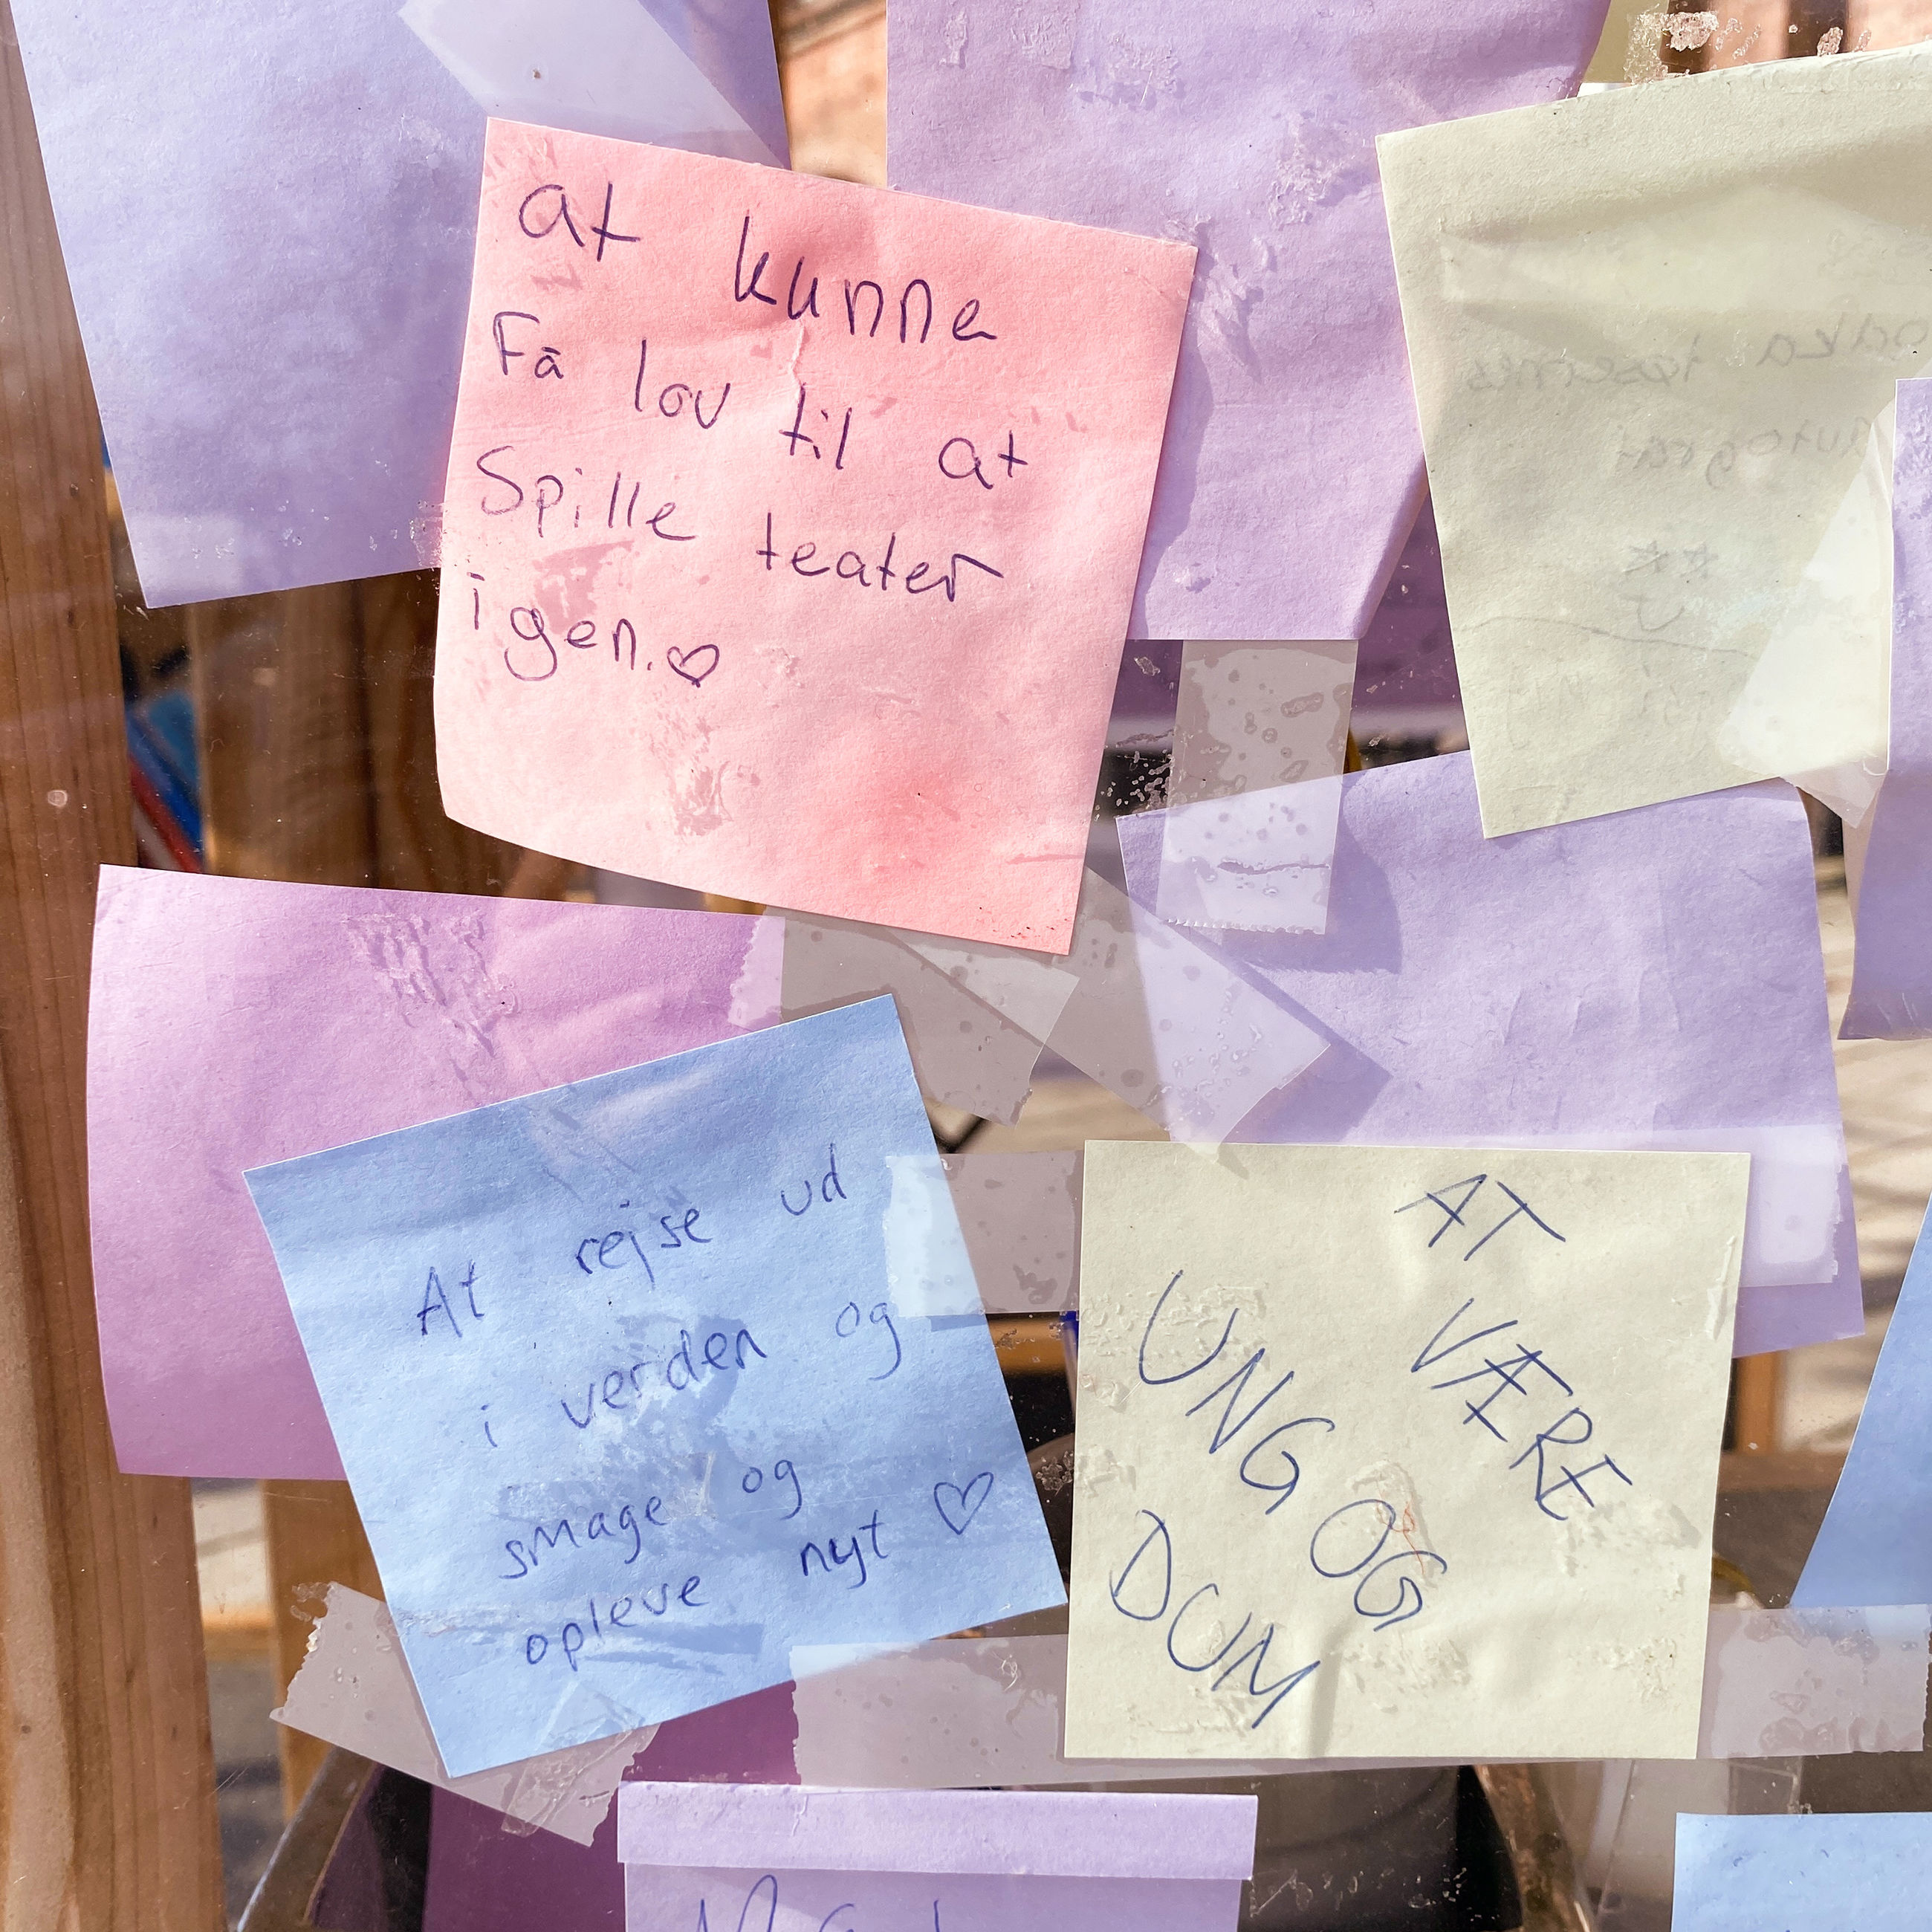 at kunne
Få lov til at
Spille teater
igen. ♡
At rejse ud
i verden og
smage og
opleve nyt ♡
AT
VÆRE
UNG OG
DUM